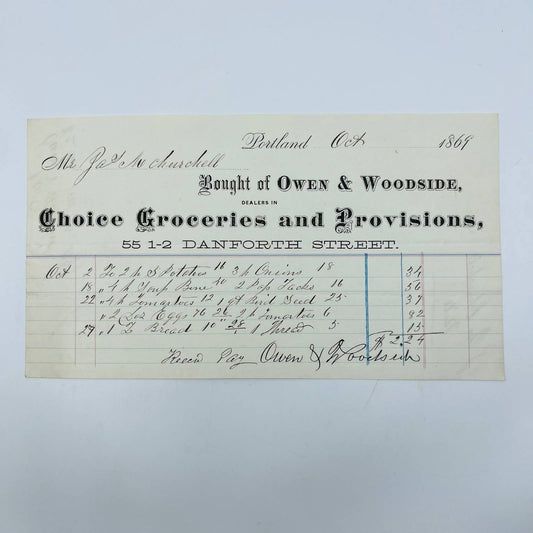 Portland Oct 1869
Mr Jas M Churchell
Bought of OWEN & WOODSIDE,
DEALERS IN
Choice Groceries and Provisions,
55 1-2 DANFORTH STREET.
Oct 2 To 2 h S Potatoes 16 3 h Onions 18 34
18 " 4 h Soup Bone 40 2 Tacks 16 56
22 " 4 h Tomartoes 12 1 qt Bird Seed 25 37
" 2 Doz Eggs 76 2 h Tomartoes 6 82
27 " 1 Bread 10 " 28 1 Thread 5 15
$ 2.24
Rec'd Pay Owen & Woodside